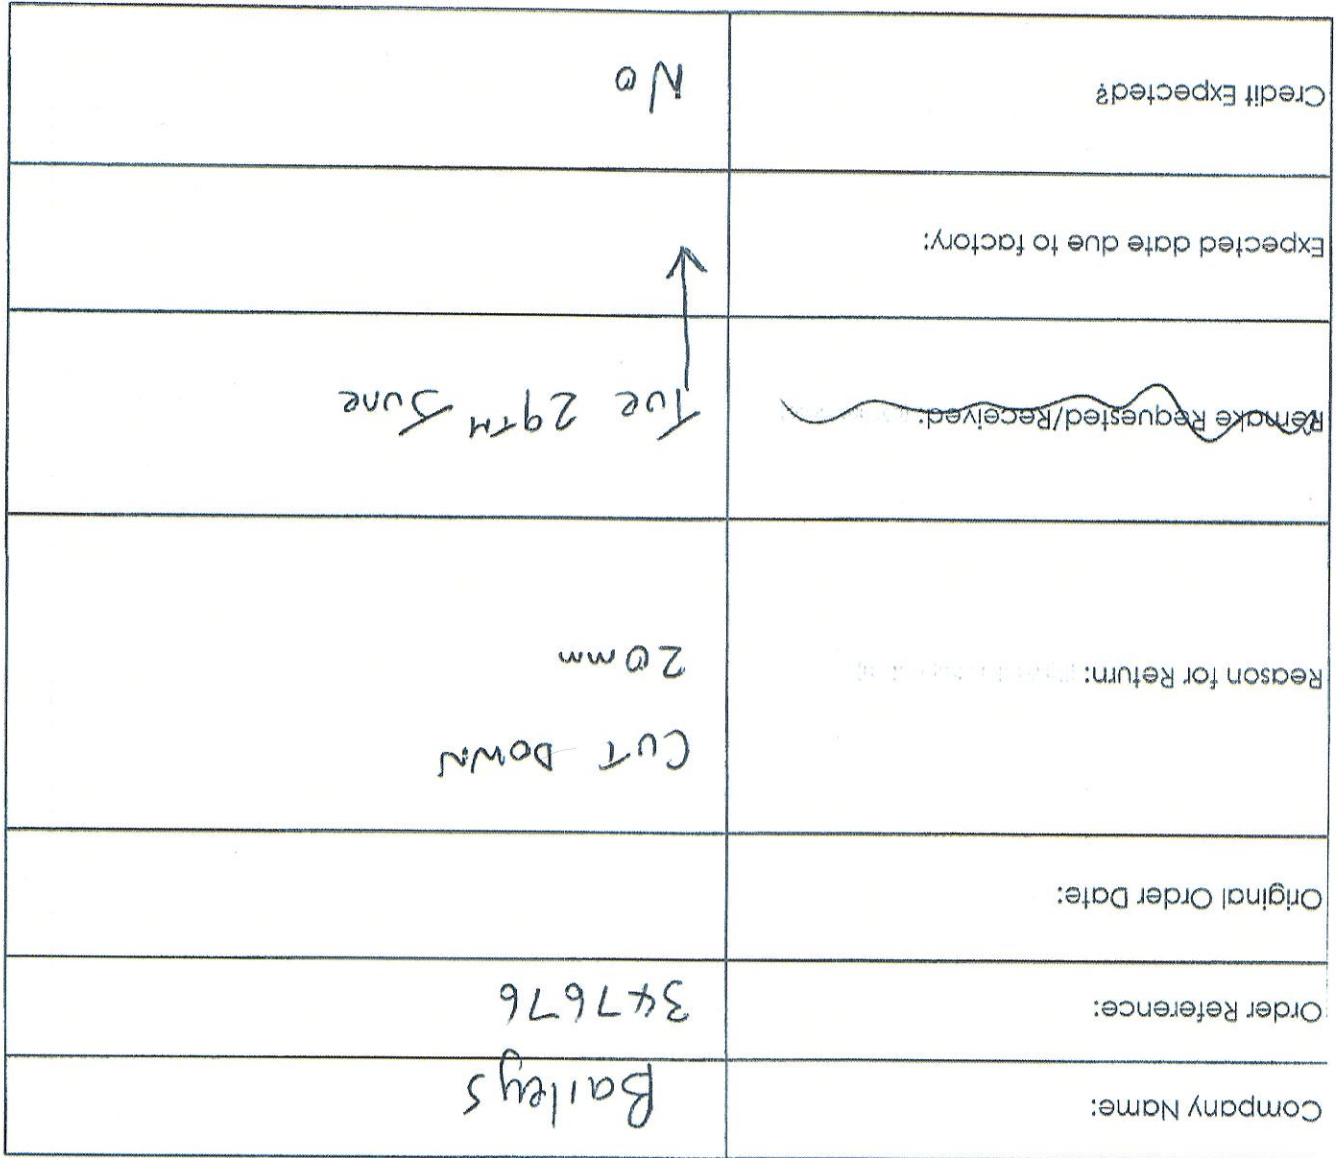 Company Name: Baileys
Order Reference: 347676
Original Order Date:
Reason for Return: CUT DOWN
20mm
Remake Requested/Received: Tue 29TH June
Expected date due to factory:
Credit Expected? No